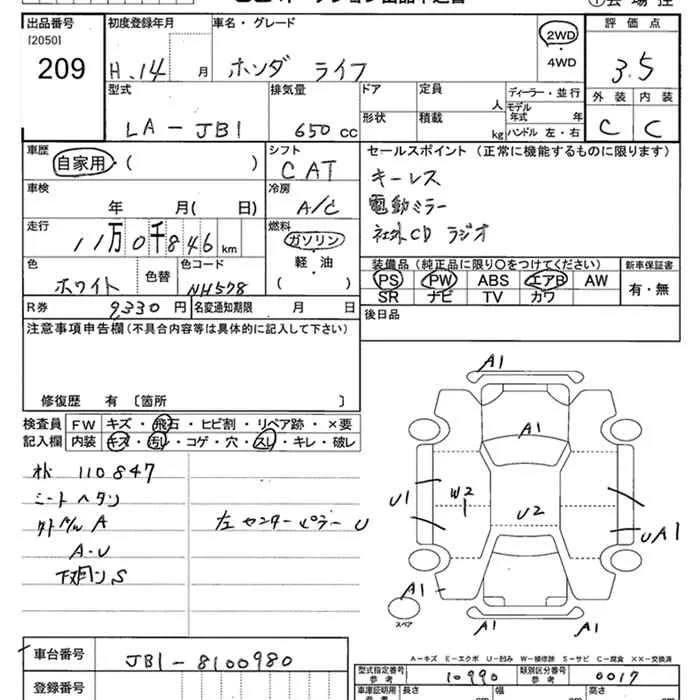 出品番号
[2050]
209
初度登録年月
H.14 月
車名・グレード
ホンダ ライフ
2WD
・
4WD
評価点
3.5
外装 内装
C C
型式
LA-JB1
排気量
650 cc
ドア
形状
定員
人
積載
kg
ディーラー・並行
モデル
年式 年
ハンドル 左・右
車歴
自家用・( )
シフト
CAT
車検
年 月( 日)
冷房
A/C
走行
11万0千846km
燃料
ガソリン
軽・油
( )
色
ホワイト
色替
色コード
NH578
R券 9,330 円
名変通知期限 月 日
セールスポイント (正常に機能するものに限ります)
キーレス
電動ミラー
社外CD ラジオ
装備品(純正品に限り○をつけてください)
PS PW ABS エアB AW
SR ナビ TV カワ
新車保証書
有・無
後日品
注意事項申告欄(不具合内容等は具体的に記入して下さい)
修復歴 有 〔箇所 〕
検査員
記入欄
FW キズ・飛石・ヒビ割・リペア跡・×要
内装 キズ・汚レ・コゲ・穴・スレ・キレ・破レ
110847
シートヘタリ
A
A・U
S
左センターピラー U
A1
A1
U1
W2
U2
UA1
A1
スペア
A1
A1
A-キズ E-エクボ U-凹み W-補修跡 S-サビ C-腐食 ××-交換済
車台番号
JB1-8100980
登録番号
型式指定番号
参考
10990
類別区分番号
参考
0017
車庫証明用
長さ
幅
高さ